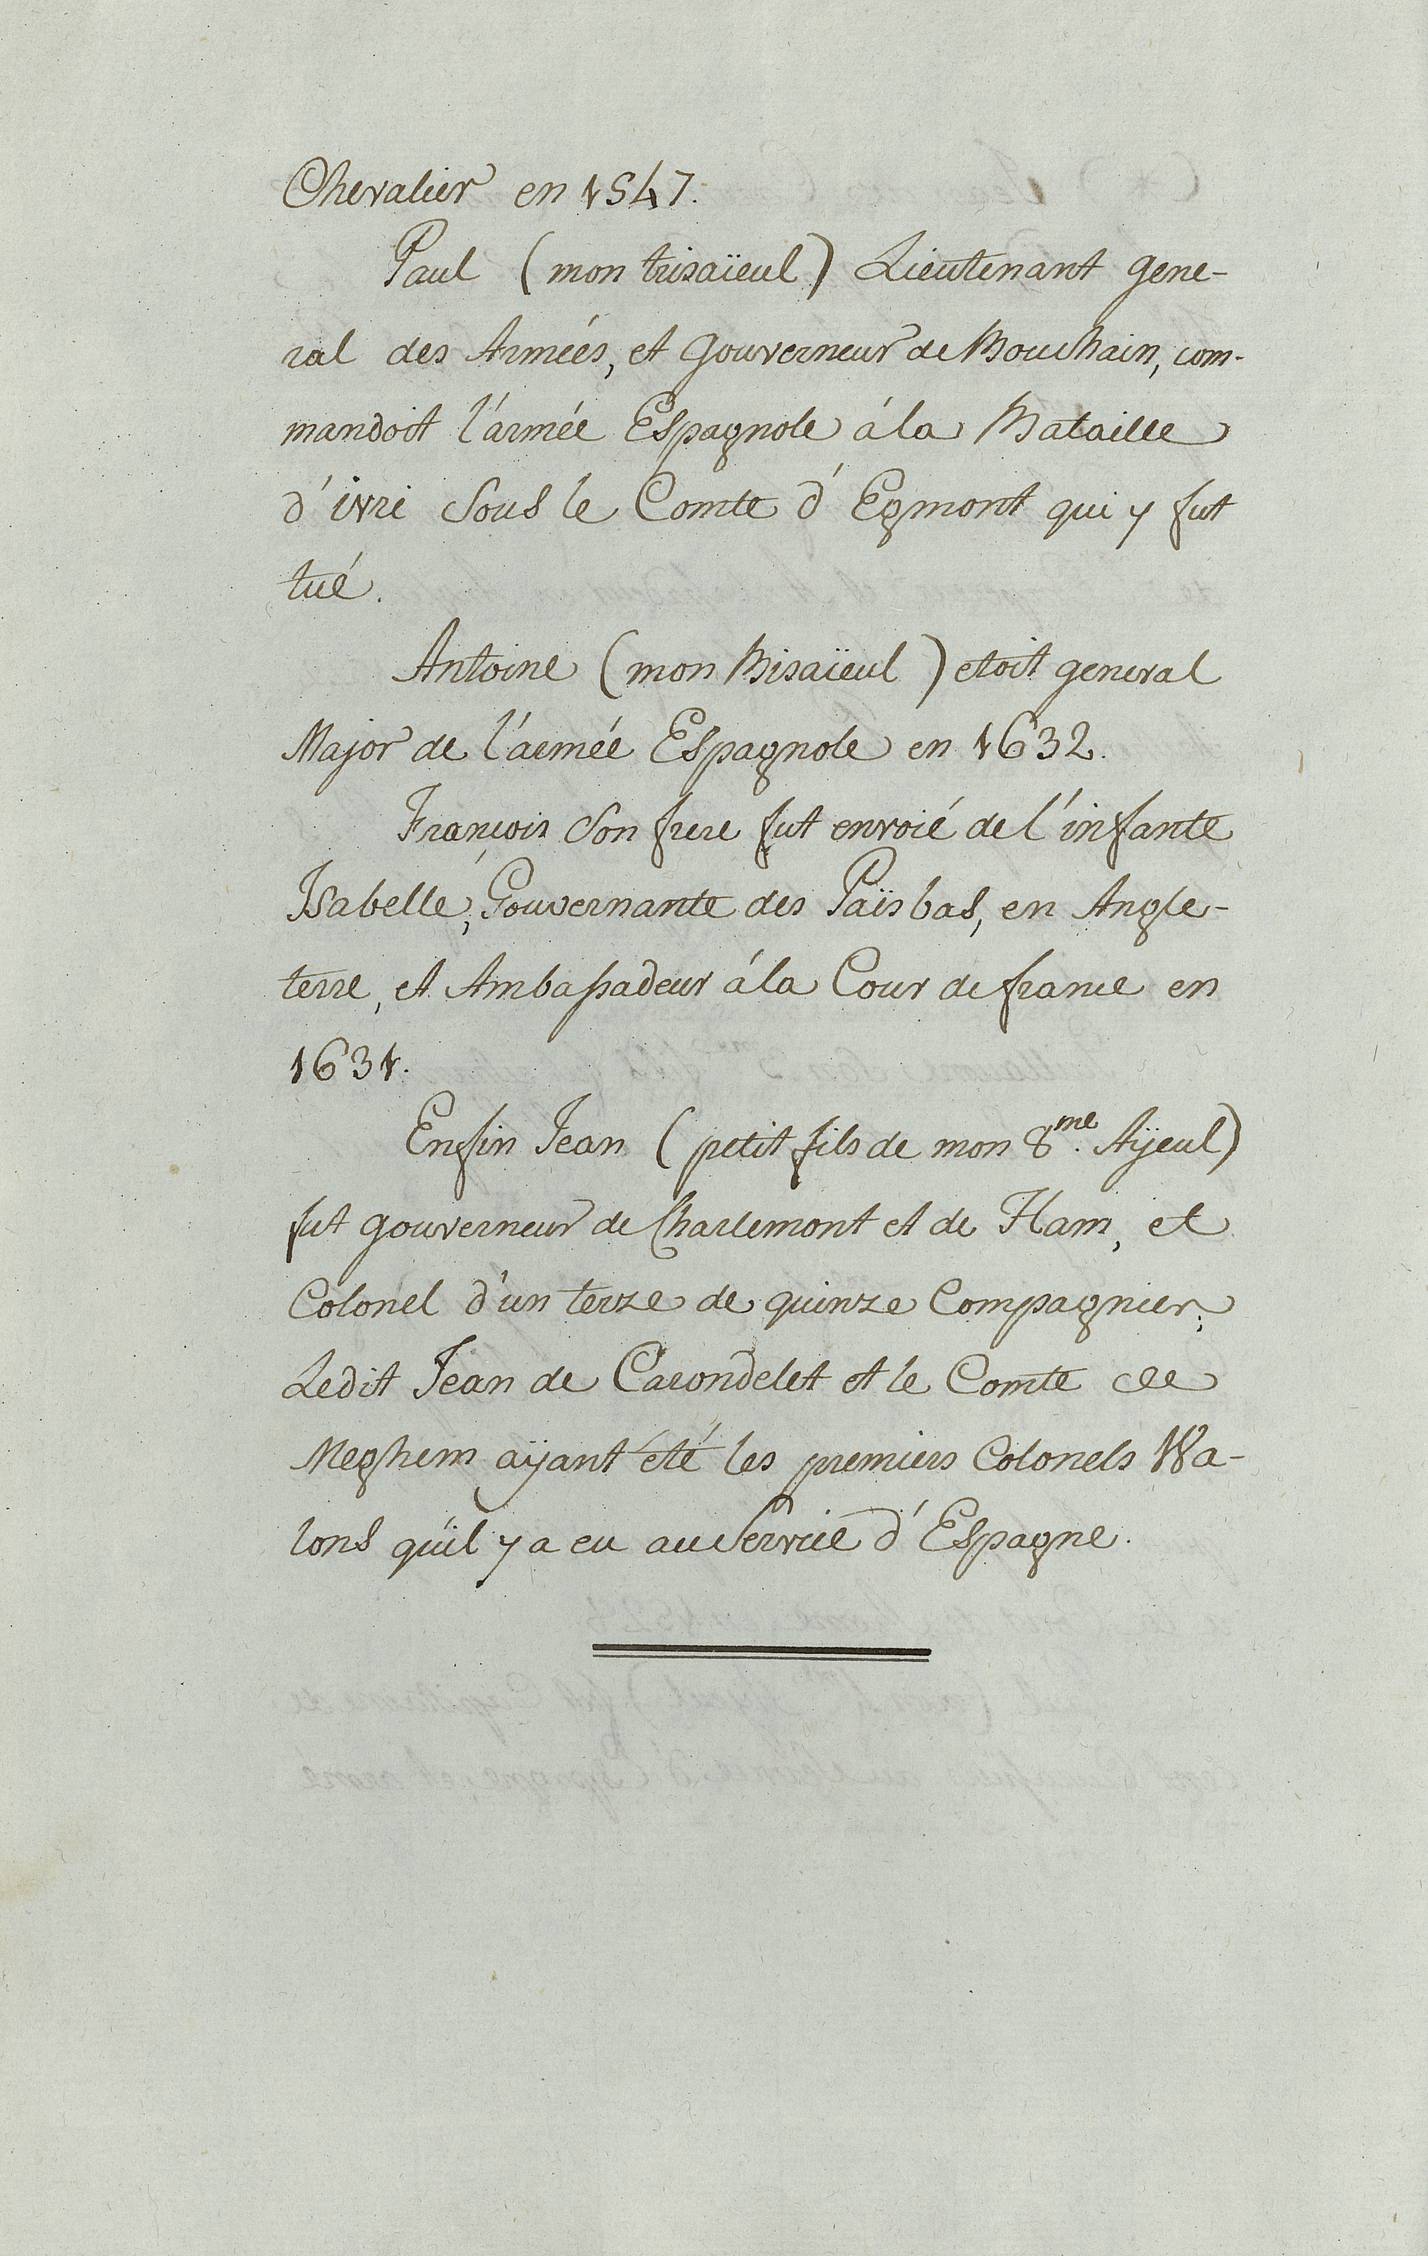 Chevalier en 1547.
Paul (mon trisaïeul) Lieutenant gene-
ral des Armées, et gouverneur de Bouchain, com-
mandoit l'armée Espagnole á la Bataille
d'ivri Sous le Comte d'Egmont qui y fut
tué.
Antoine (mon Bisaïeul) etoit general
Major de l'armée Espagnole en 1632.
François Son frere fut envoié de l'infante
Isabelle, Gouvernante des Païs bas, en Angle-
terre, et Ambassadeur á la Cour de france en
1631.
Enfin Jean (petit fils de mon 8.me Ayeul)
fut gouverneur de Charlemont et de Ham, et
Colonel d'un terze de quinze Compagnies,
Ledit Jean de Carondelet et le Comte de
Meghem aÿant été les premiers Colonels Wa-
lons qu'il y a eu au Service d'Espagne.